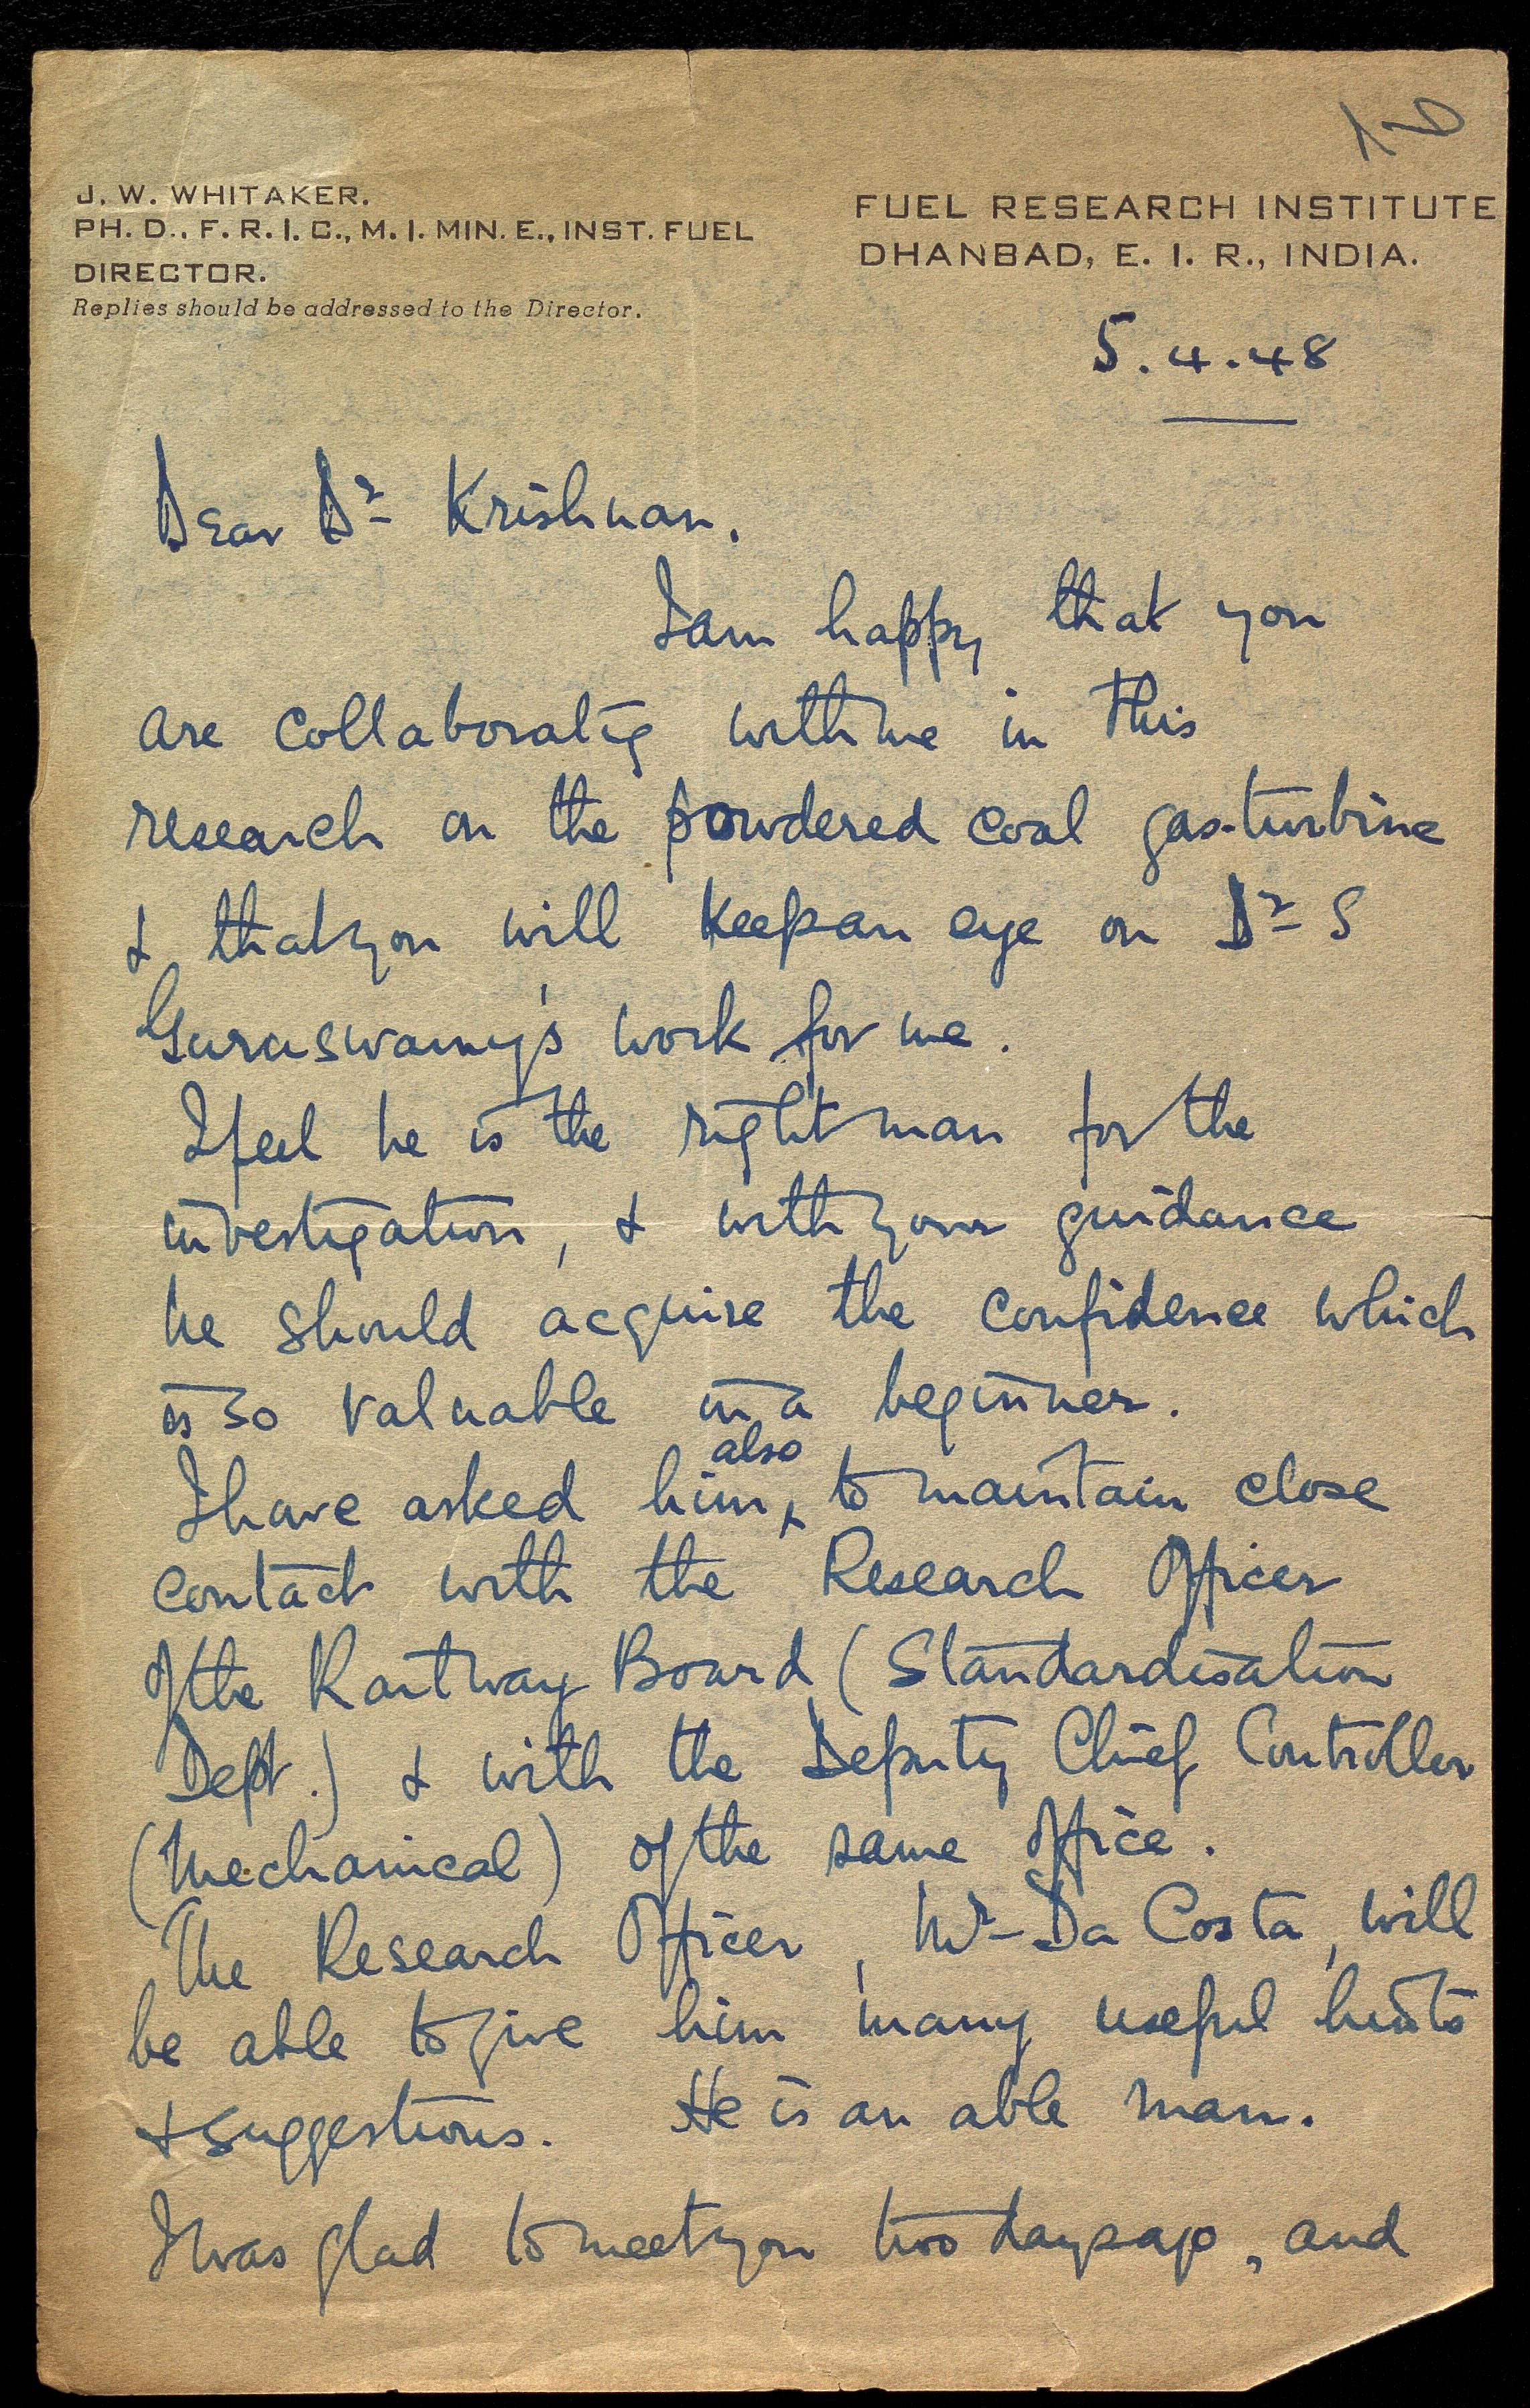 J. W. WHITAKER.
PH. D., F. R. I. C., M. I. MIN. E., INST. FUEL
DIRECTOR.
Replies should be addressed to the Director.
FUEL RESEARCH INSTITUTE
DHANBAD, E. I. R., INDIA.
5.4.48
Dear Dr Krishnan,
I am happy that you
are collaborating with me in this
research on the powdered coal gas-turbine
& that you will keep an eye on Dr S
Guruswamy's work for me.
I feel he is the right man for the
investigation, & with your guidance
he should acquire the confidence which
is so valuable in a beginner.
I have asked him also to maintain close
contact with the Research Officer
of the Railway Board (Standardisation
Dept.) & with the Deputy Chief Controller
(Mechanical) of the same office.
The Research Officer, Mr Da Costa, will
be able to give him many useful hints
& suggestions. He is an able man.
I was glad to meet you two days ago, and